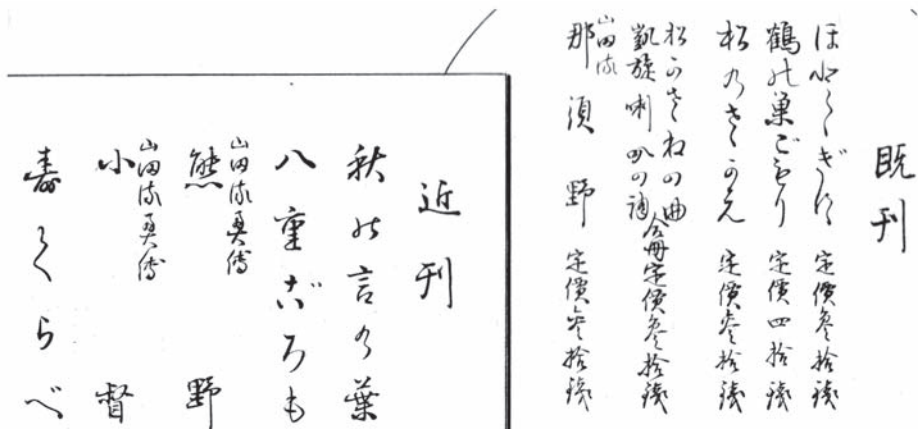 既刊
ほとゝぎす 定價參拾錢
鶴の巣ごもり 定價四拾錢
松のさかえ 定價參拾錢
松かさねの曲
凱旋喇叭の調 合冊定價參拾錢
山田流
那須野 定價參拾錢
近刊
秋の言の葉
八重ごろも
山田流奥傳
熊野
山田流奥傳
小督
壽くらべ